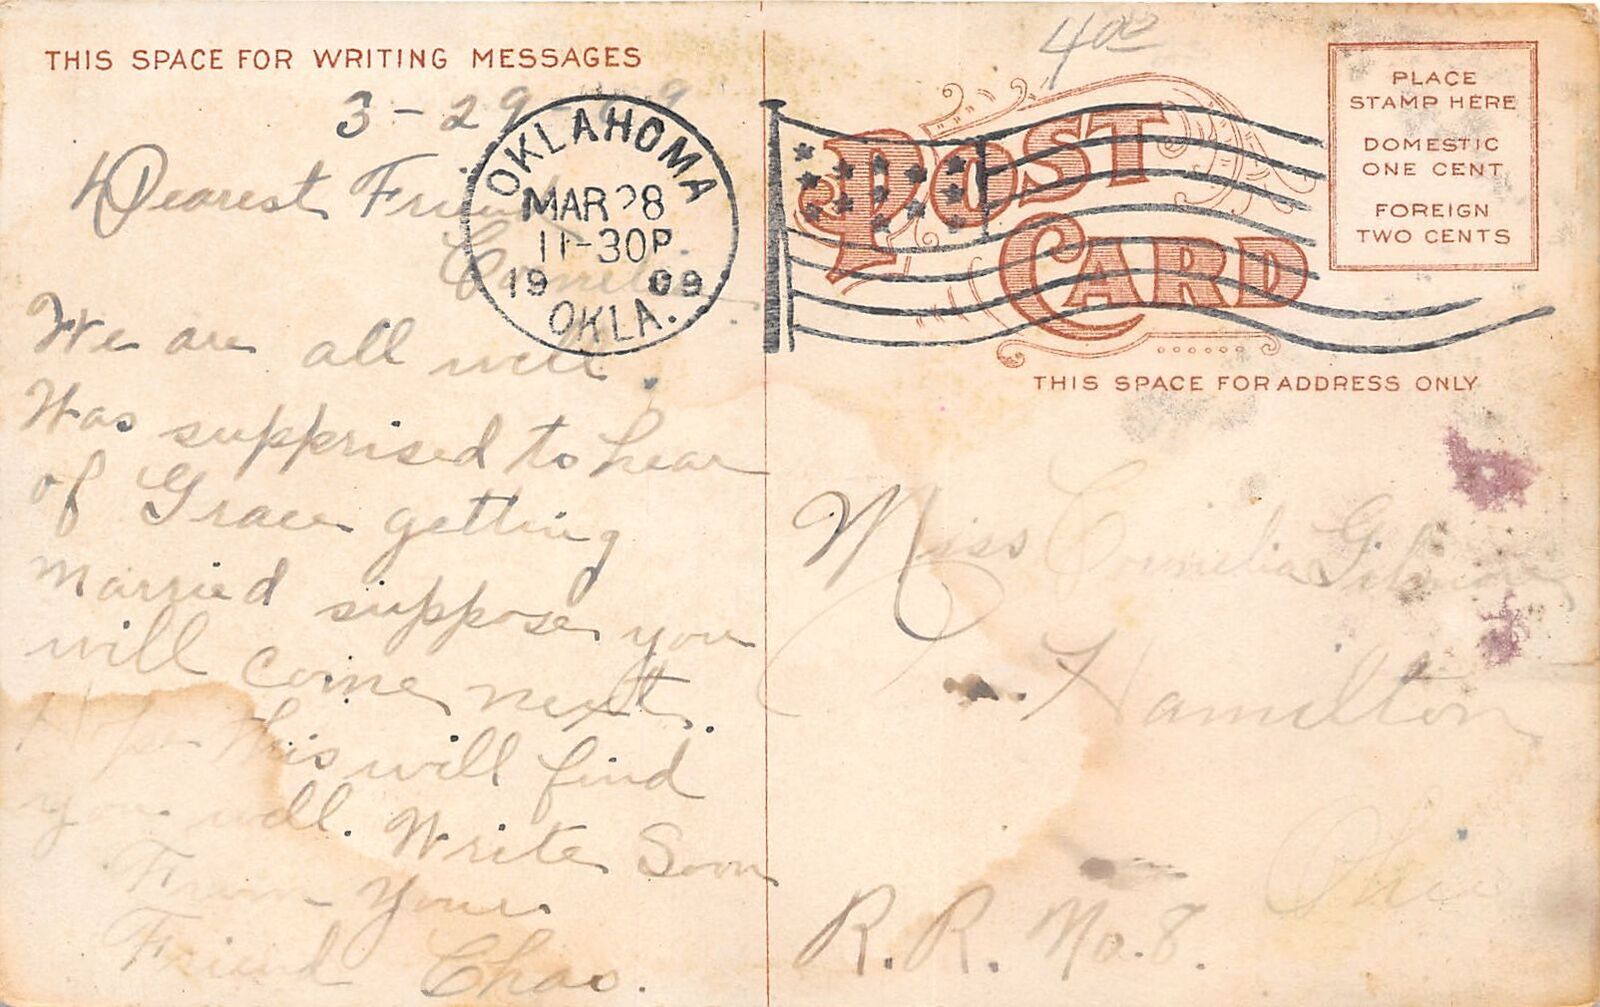 THIS SPACE FOR WRITING MESSAGES
3-29-09
Dearest Friend
Cornelia
We are all well.
Was suppprised to hear
of Grace getting
Married suppose you
will come next..
Hope this will find
you well. Write Soon
From Your
Friend Chas.
OKLAHOMA
MAR 28
11-30P
1909
OKLA.
400
POST
CARD
PLACE
STAMP HERE
DOMESTIC
ONE CENT
FOREIGN
TWO CENTS
THIS SPACE FOR ADDRESS ONLY
Miss Cornelia Gilmore
Hamilton
Ohio
R. R. No. 8.